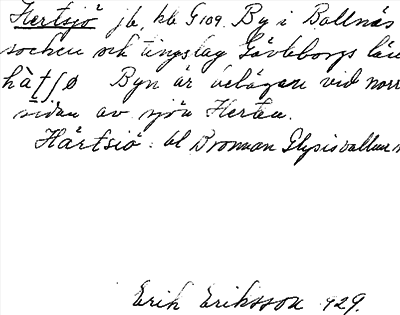 Hertsjö jb, kb G109. By i Bollnäs
socken och tingslag Gävleborgs län
hàtʃø Byn är belägen vid norr
sidan av sjön Herten.
Härtsiö: bl Broman Glysisvallur
Erik Eriksson 929.